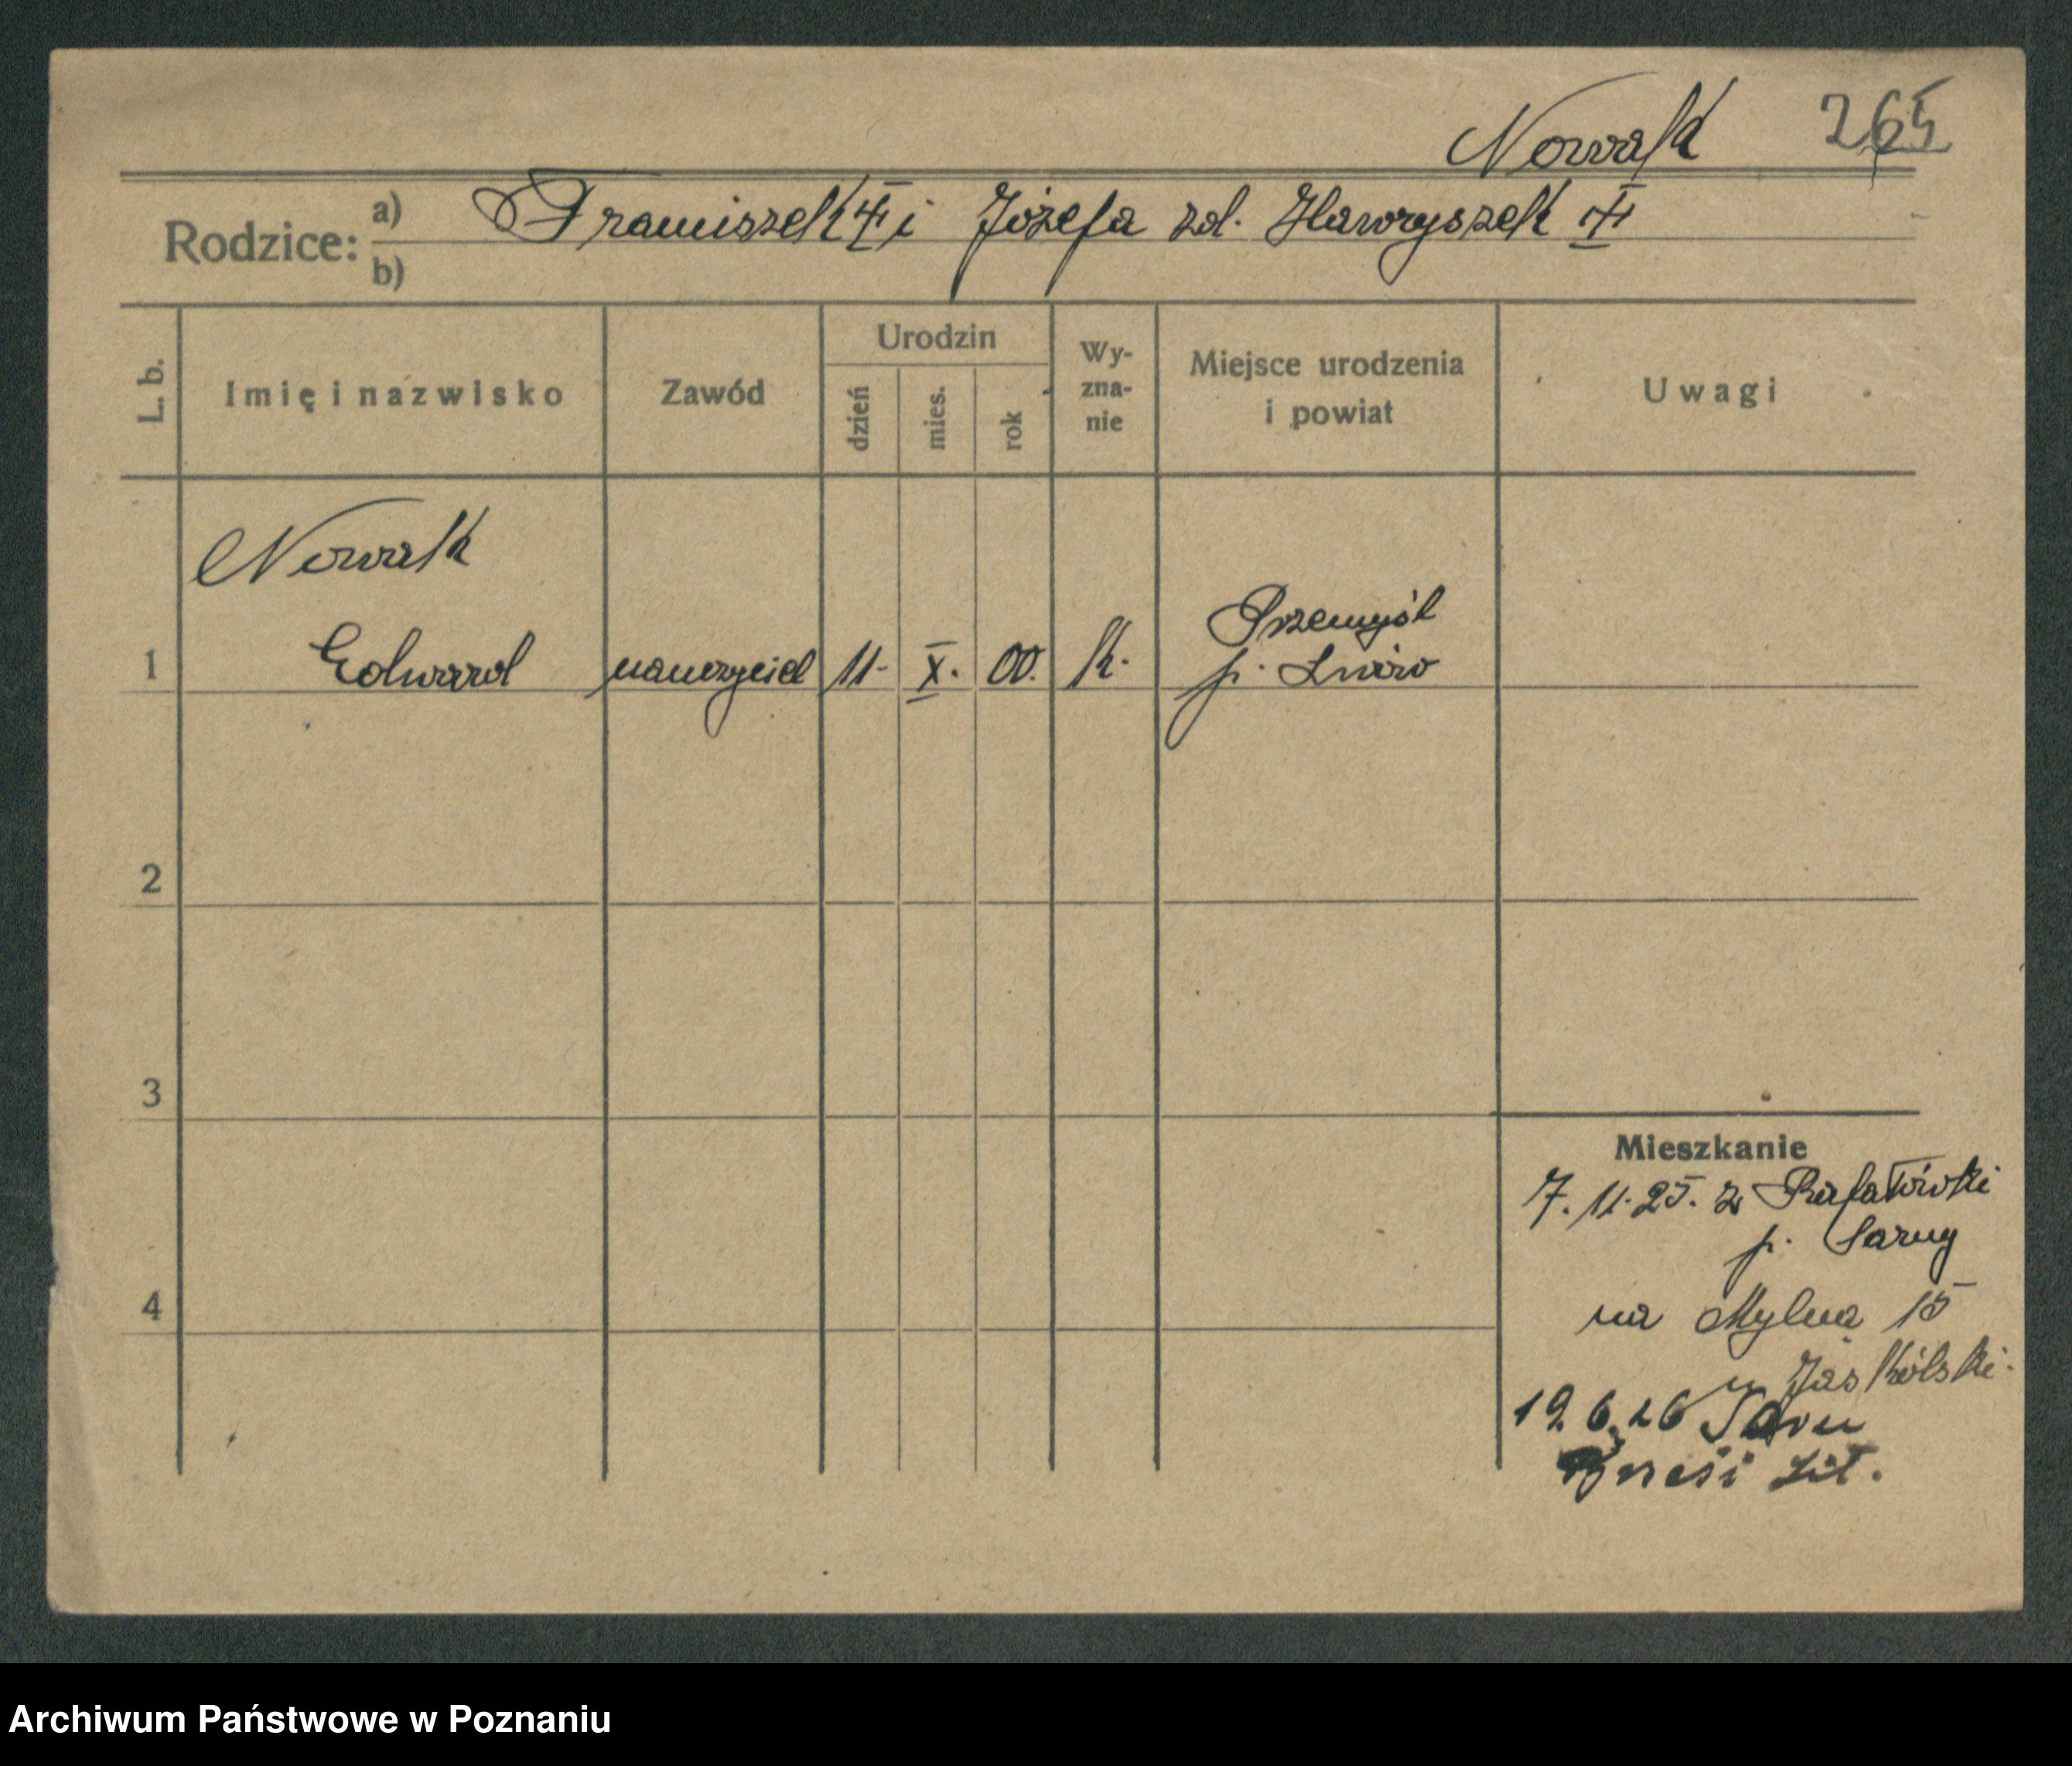 Nowak 265
Rodzice: a) Franciszek i Józefa zd. Hawryszek
b)
L. b. Imię i nazwisko Zawód Urodzin dzień mies. rok Wy-zna-nie Miejsce urodzenia i powiat Uwagi
Nowak
1 Edward nauczyciel 11. X. 00. k. Przemyśl
p. Lwów
2
3
Mieszkanie
7.11.25. z Rafałówki
p. Sarny
4
na Mylna 15
u Jaskólski.
19.6.26
Brześć Lit.
Archiwum Państwowe w Poznaniu